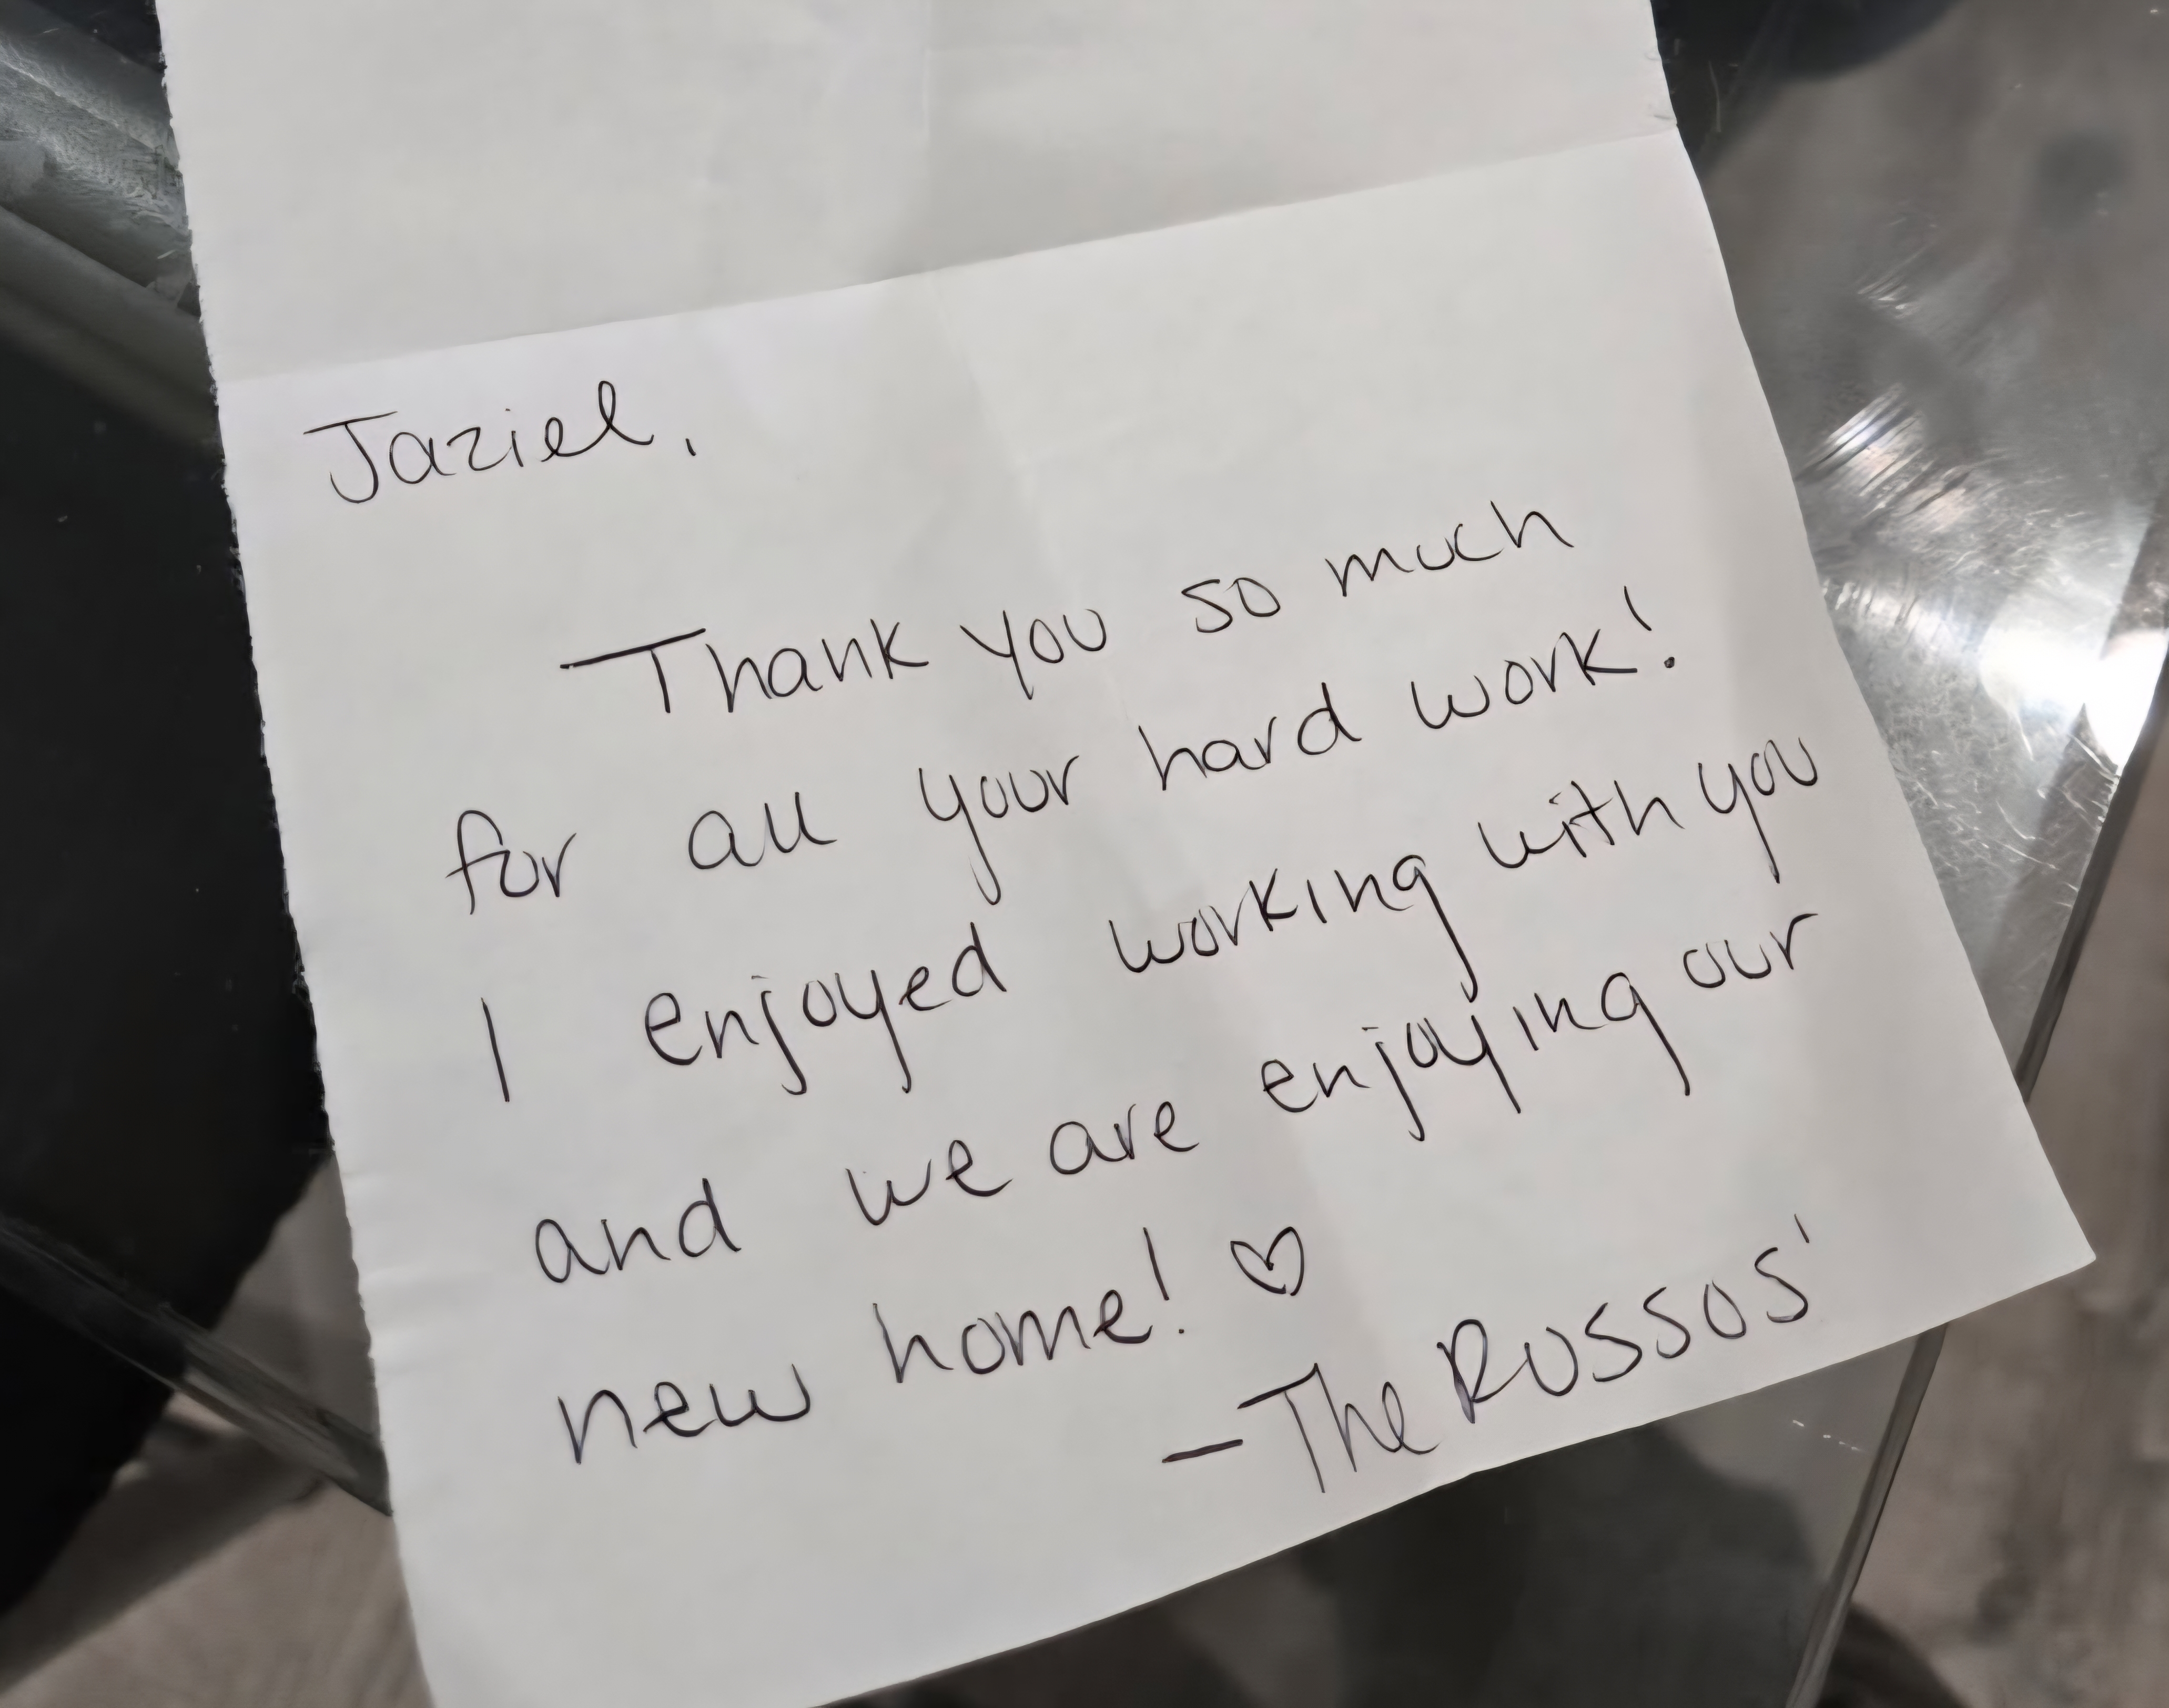 Jaziel,
Thank you so much
for all your hard work!
I enjoyed working with you
and we are enjoying our
new home! ♡
- The Russos'